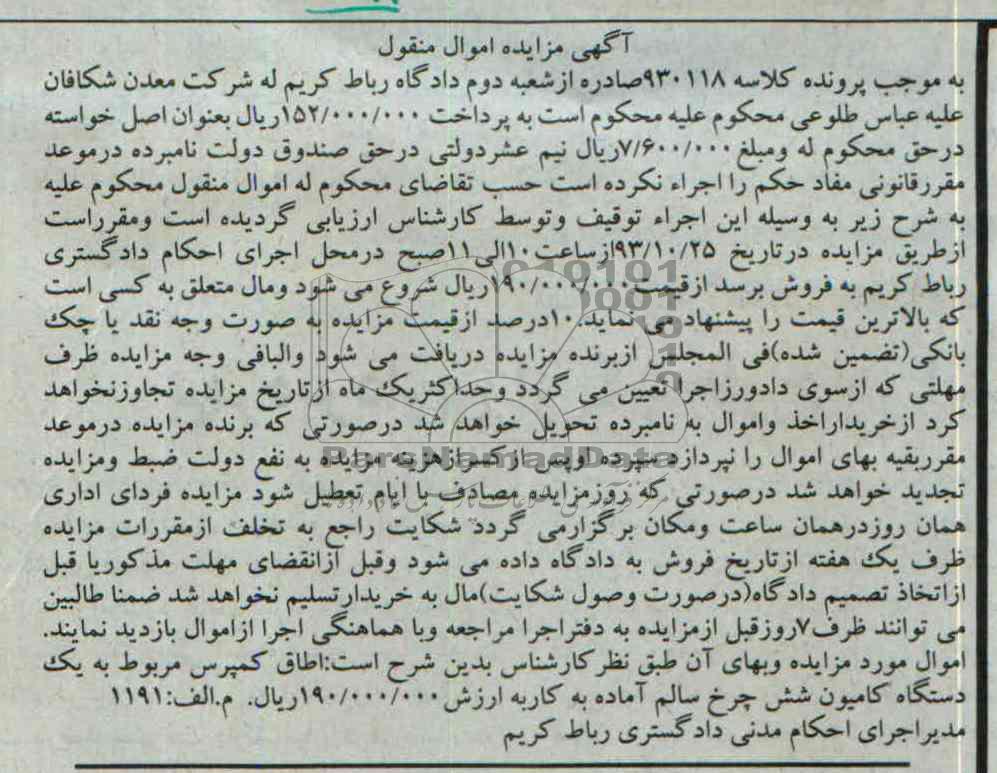 آگهی مزایده اموال منقول
به موجب پرونده کلاسه ۹۳۰۱۱۸صادره ازشعبه دوم دادگاه رباط کریم له شرکت معدن شکافان
علیه عباس طلوعی محکوم علیه محکوم است به پرداخت ۱۵۲/۰۰۰/۰۰۰ریال بعنوان اصل خواسته
درحق محکوم له ومبلغ ۷/۶۰۰/۰۰۰ریال نیم عشردولتی درحق صندوق دولت نامبرده درموعد
مقررقانونی مفاد حکم را اجراء نکرده است حسب تقاضای محکوم له اموال منقول محکوم علیه
به شرح زیر به وسیله این اجراء توقیف وتوسط کارشناس ارزیابی گردیده است ومقرراست
ازطریق مزایده درتاریخ ۹۳/۱۰/۲۵ازساعت۱۰الی۱۱صبح درمحل اجرای احکام دادگستری
رباط کریم به فروش برسد ازقیمت۱۹۰/۰۰۰/۰۰۰ریال شروع می شود ومال متعلق به کسی است
که بالاترین قیمت را پیشنهاد می نماید.۱۰درصد ازقیمت مزایده به صورت وجه نقد یا چک
بانکی(تضمین شده)فی المجلس ازبرنده مزایده دریافت می شود والباقی وجه مزایده ظرف
مهلتی که ازسوی دادورزاجرا تعیین می گردد وحداکثریک ماه ازتاریخ مزایده تجاوزنخواهد
کرد ازخریداراخذ واموال به نامبرده تحویل خواهد شد درصورتی که برنده مزایده درموعد
مقرربقیه بهای اموال را نپردازد سپرده اوپس ازکسرازهزینه مزایده به نفع دولت ضبط ومزایده
تجدید خواهد شد درصورتی که روزمزایده مصادف با ایام تعطیل شود مزایده فردای اداری
همان روزدرهمان ساعت ومکان برگزارمی گردد شکایت راجع به تخلف ازمقررات مزایده
ظرف یک هفته ازتاریخ فروش به دادگاه داده می شود وقبل ازانقضای مهلت مذکوریا قبل
ازاتخاذ تصمیم دادگاه(درصورت وصول شکایت)مال به خریدارتسلیم نخواهد شد ضمنا طالبین
می توانند ظرف۷روزقبل ازمزایده به دفتراجرا مراجعه وبا هماهنگی اجرا ازاموال بازدید نمایند.
اموال مورد مزایده وبهای آن طبق نظرکارشناس بدین شرح است:اطاق کمپرس مربوط به یک
دستگاه کامیون شش چرخ سالم آماده به کاربه ارزش ۱۹۰/۰۰۰/۰۰۰ریال. م.الف:۱۱۹۱
مدیراجرای احکام مدنی دادگستری رباط کریم
ParsNamadData